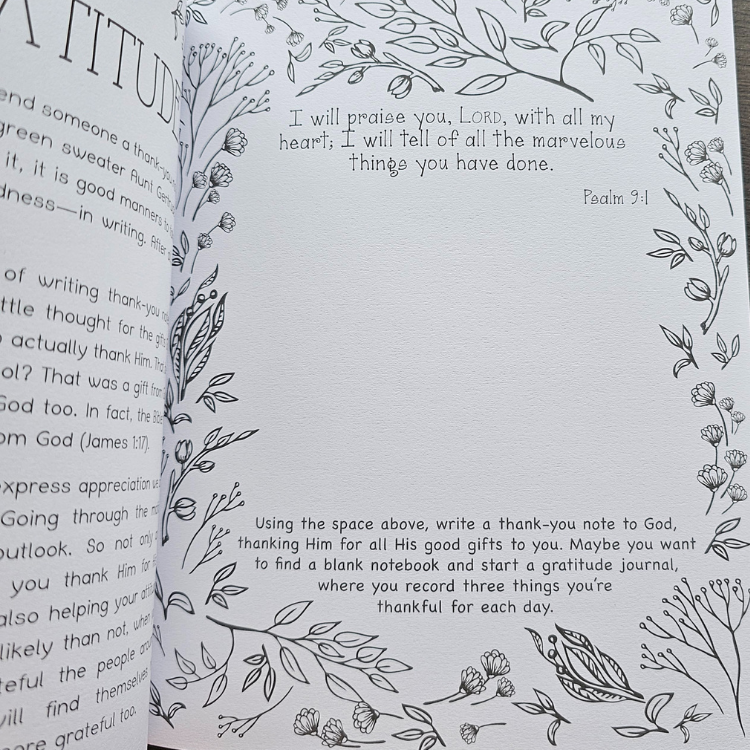 ATITUDE
end someone a thank-you
green sweater Aunt
it, it is good manners to
dness—in writing. After
of writing thank-you
ttle thought for the
actually thank Him.
ol? That was a gift from
God too. In fact, the Bible
om God (James 1:17).
xpress appreciation
Going through the
outlook. So not only
you thank Him for
also helping your
likely than not, when
teful the people
will find themselves
ore grateful too.
I will praise you, LORD, with all my
heart; I will tell of all the marvelous
things you have done.
Psalm 9:1
Using the space above, write a thank-you note to God,
thanking Him for all His good gifts to you. Maybe you want
to find a blank notebook and start a gratitude journal,
where you record three things you're
thankful for each day.